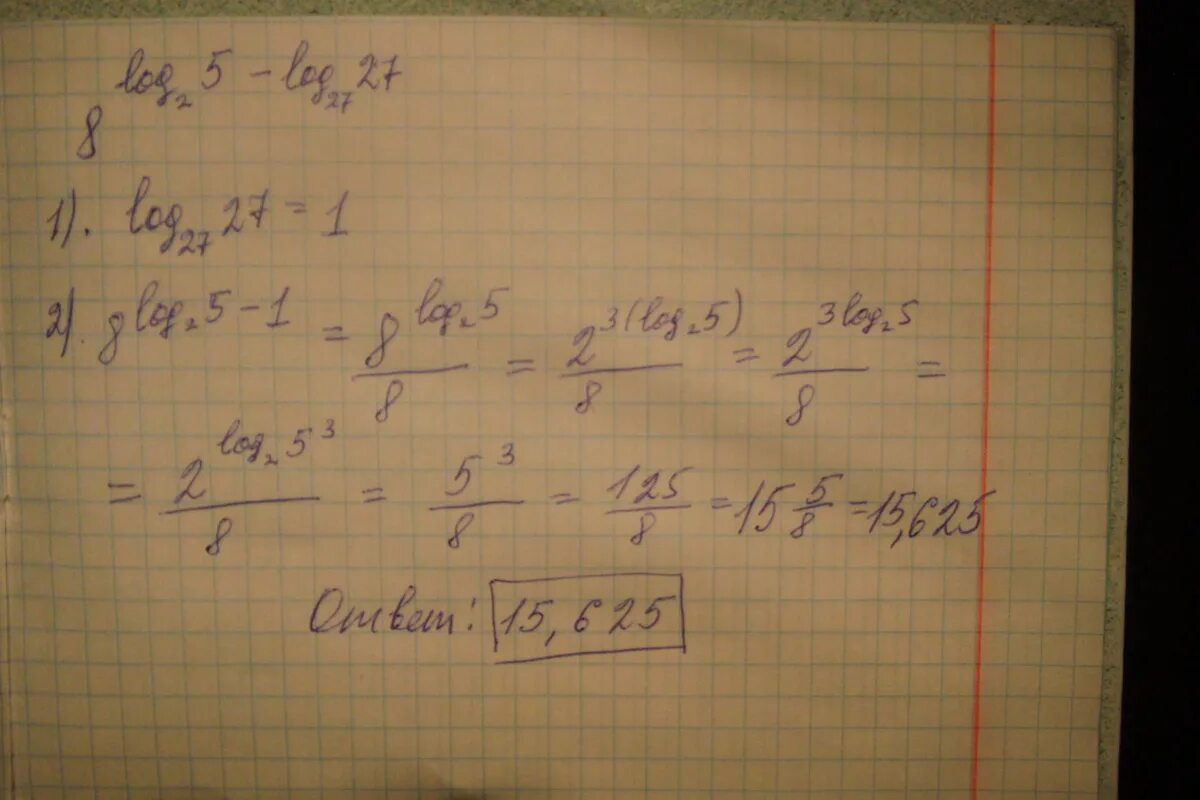 8^(log₂5 − log₂₇27)
1). log₂₇27 = 1
2). 8^(log₂5 − 1) = 8^(log₂5)/8 = 2^(3(log₂5))/8 = 2^(3log₂5)/8 =
= 2^(log₂5³)/8 = 5³/8 = 125/8 = 15 5/8 = 15,625
Ответ: 15,625